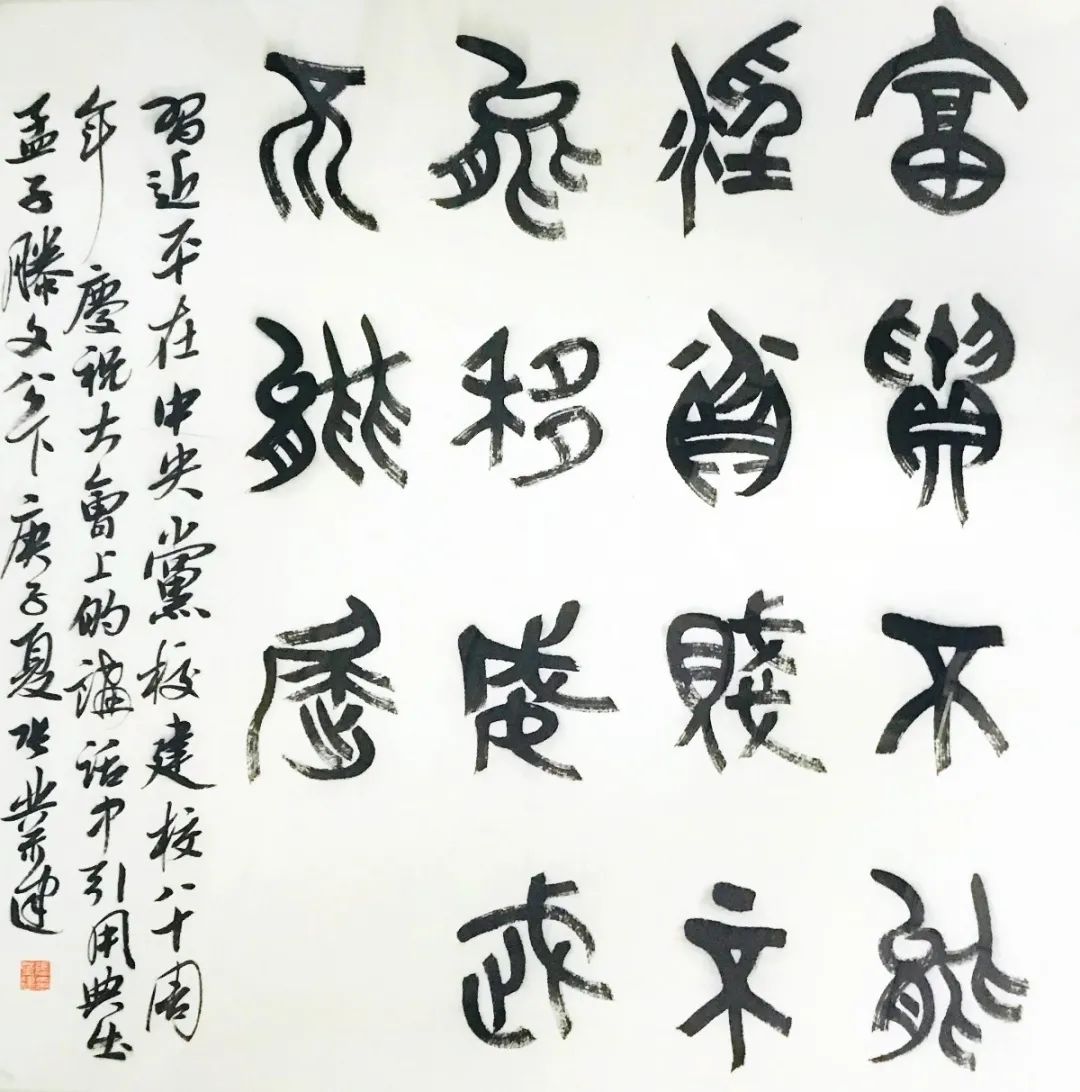 富貴不能
淫貧賤不
能移威武
不能屈
習近平在中央黨校建校八十周
年慶祝大會上的講話中引用典出
孟子滕文公下庚子夏张業建